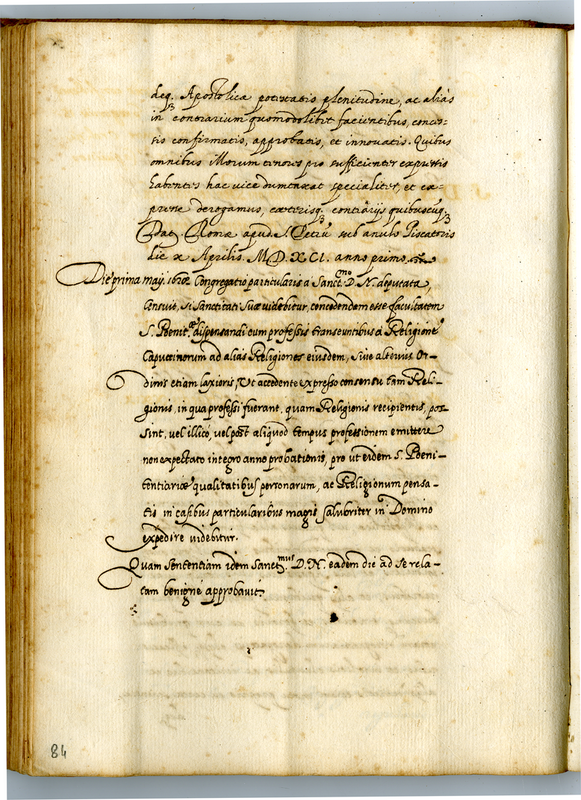 deq3 Apostolica potestatis plenitudine, ac alias
in contrarium quomodolibet facientibus, conces-
sis confirmatis, approbatis, et innovatis. Quibus
omnibus illorum tenores pro sufficienter expressis
habentes hac vice dumtaxat specialiter, et ex-
presse derogamus, ceterisq3 contrarijs quibuscuq3
Dat. Romæ apud S. Petrū sub anulo Piscatoris
die x Aprilis. M.D.XCI. anno primo.
Die prima may. 1620. Congregatio particularis a Sanct.mo D. N. deputata,
Censuit, si Sanctitati Suæ videbitur, concedendam esse facultatem
S. Poenit.æ dispensandi cum professis transeuntibus à Religione
Capuccinorum ad alias Religiones eiusdem, sive alterius Or-
dinis etiam laxioris, Ut accedente expresso consensu tam Reli-
gionis, in qua professi fuerant, quam Religionis recipientis, pos-
sint, vel illico, vel post aliquod tempus professionem emittere
non expectato integro anno probationis, pro ut eidem S. Poeni-
tentiariæ qualitatibus personarum, ac Religionum pensa-
tis in casibus particularibus magis salubriter in Domino
expedire videbitur.
Quam sententiam idem Sanct.mus D. N. eadem die ad se rela-
tam benigne approbavit.
84